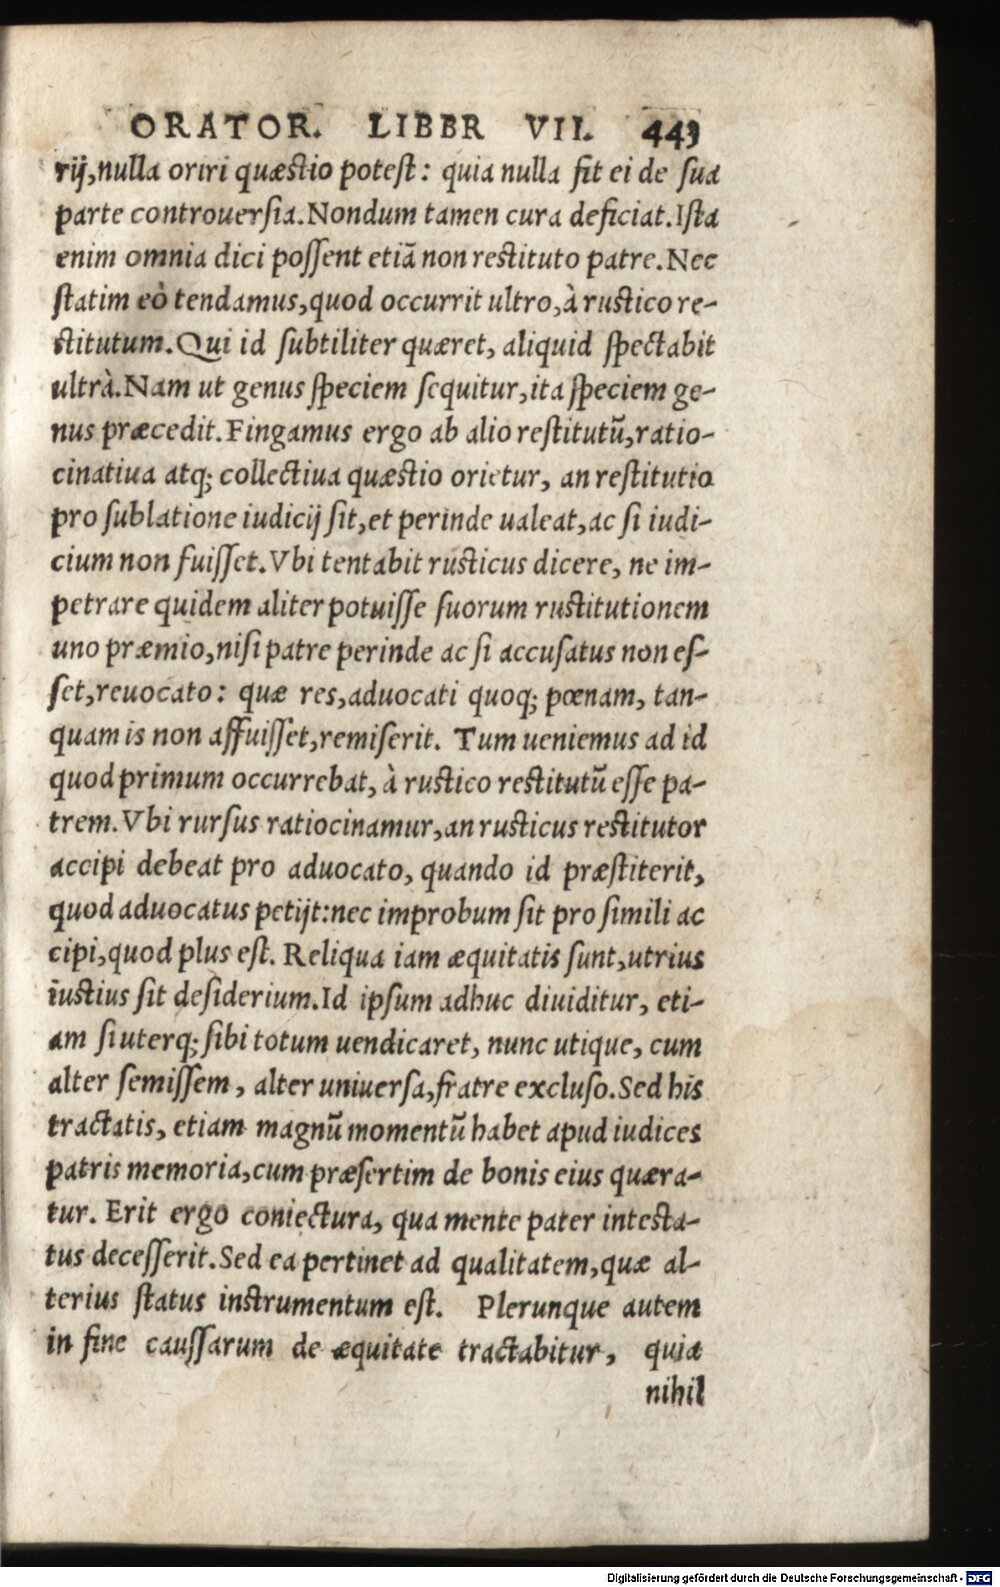 ORATOR. LIBER VII. 443
rij, nulla oriri quæstio potest: quia nulla fit ei de sua
parte controuersia. Nondum tamen cura deficiat. Ista
enim omnia dici possent etiã non restituto patre. Nec
statim eò tendamus, quod occurrit ultro, à rustico re-
stitutum. Qui id subtiliter quæret, aliquid spectabit
ultrà. Nam ut genus speciem sequitur, ita speciem ge-
nus præcedit. Fingamus ergo ab alio restitutũ, ratio-
cinatiua atq; collectiua quæstio orietur, an restitutio
pro sublatione iudicij sit, et perinde ualeat, ac si iudi-
cium non fuisset. Vbi tentabit rusticus dicere, ne im-
petrare quidem aliter potuisse suorum rustitutionem
uno præmio, nisi patre perinde ac si accusatus non es-
set, reuocato: quæ res, aduocati quoq; pœnam, tan-
quam is non affuisset, remiserit. Tum ueniemus ad id
quod primum occurrebat, à rustico restitutũ esse pa-
trem. Vbi rursus ratiocinamur, an rusticus restitutor
accipi debeat pro aduocato, quando id præstiterit,
quod aduocatus petijt: nec improbum sit pro simili ac
cipi, quod plus est. Reliqua iam æquitatis sunt, utrius
iustius sit desiderium. Id ipsum adhuc diuiditur, eti-
am si uterq; sibi totum uendicaret, nunc utique, cum
alter semissem, alter uniuersa, fratre excluso. Sed his
tractatis, etiam magnũ momentũ habet apud iudices
patris memoria, cum præsertim de bonis eius quæra-
tur. Erit ergo coniectura, qua mente pater intesta-
tus decesserit. Sed ea pertinet ad qualitatem, quæ al-
terius status instrumentum est. Plerunque autem
in fine caussarum de æquitate tractabitur, quia
nihil
Digitalisierung gefördert durch die Deutsche Forschungsgemeinschaft - DFG